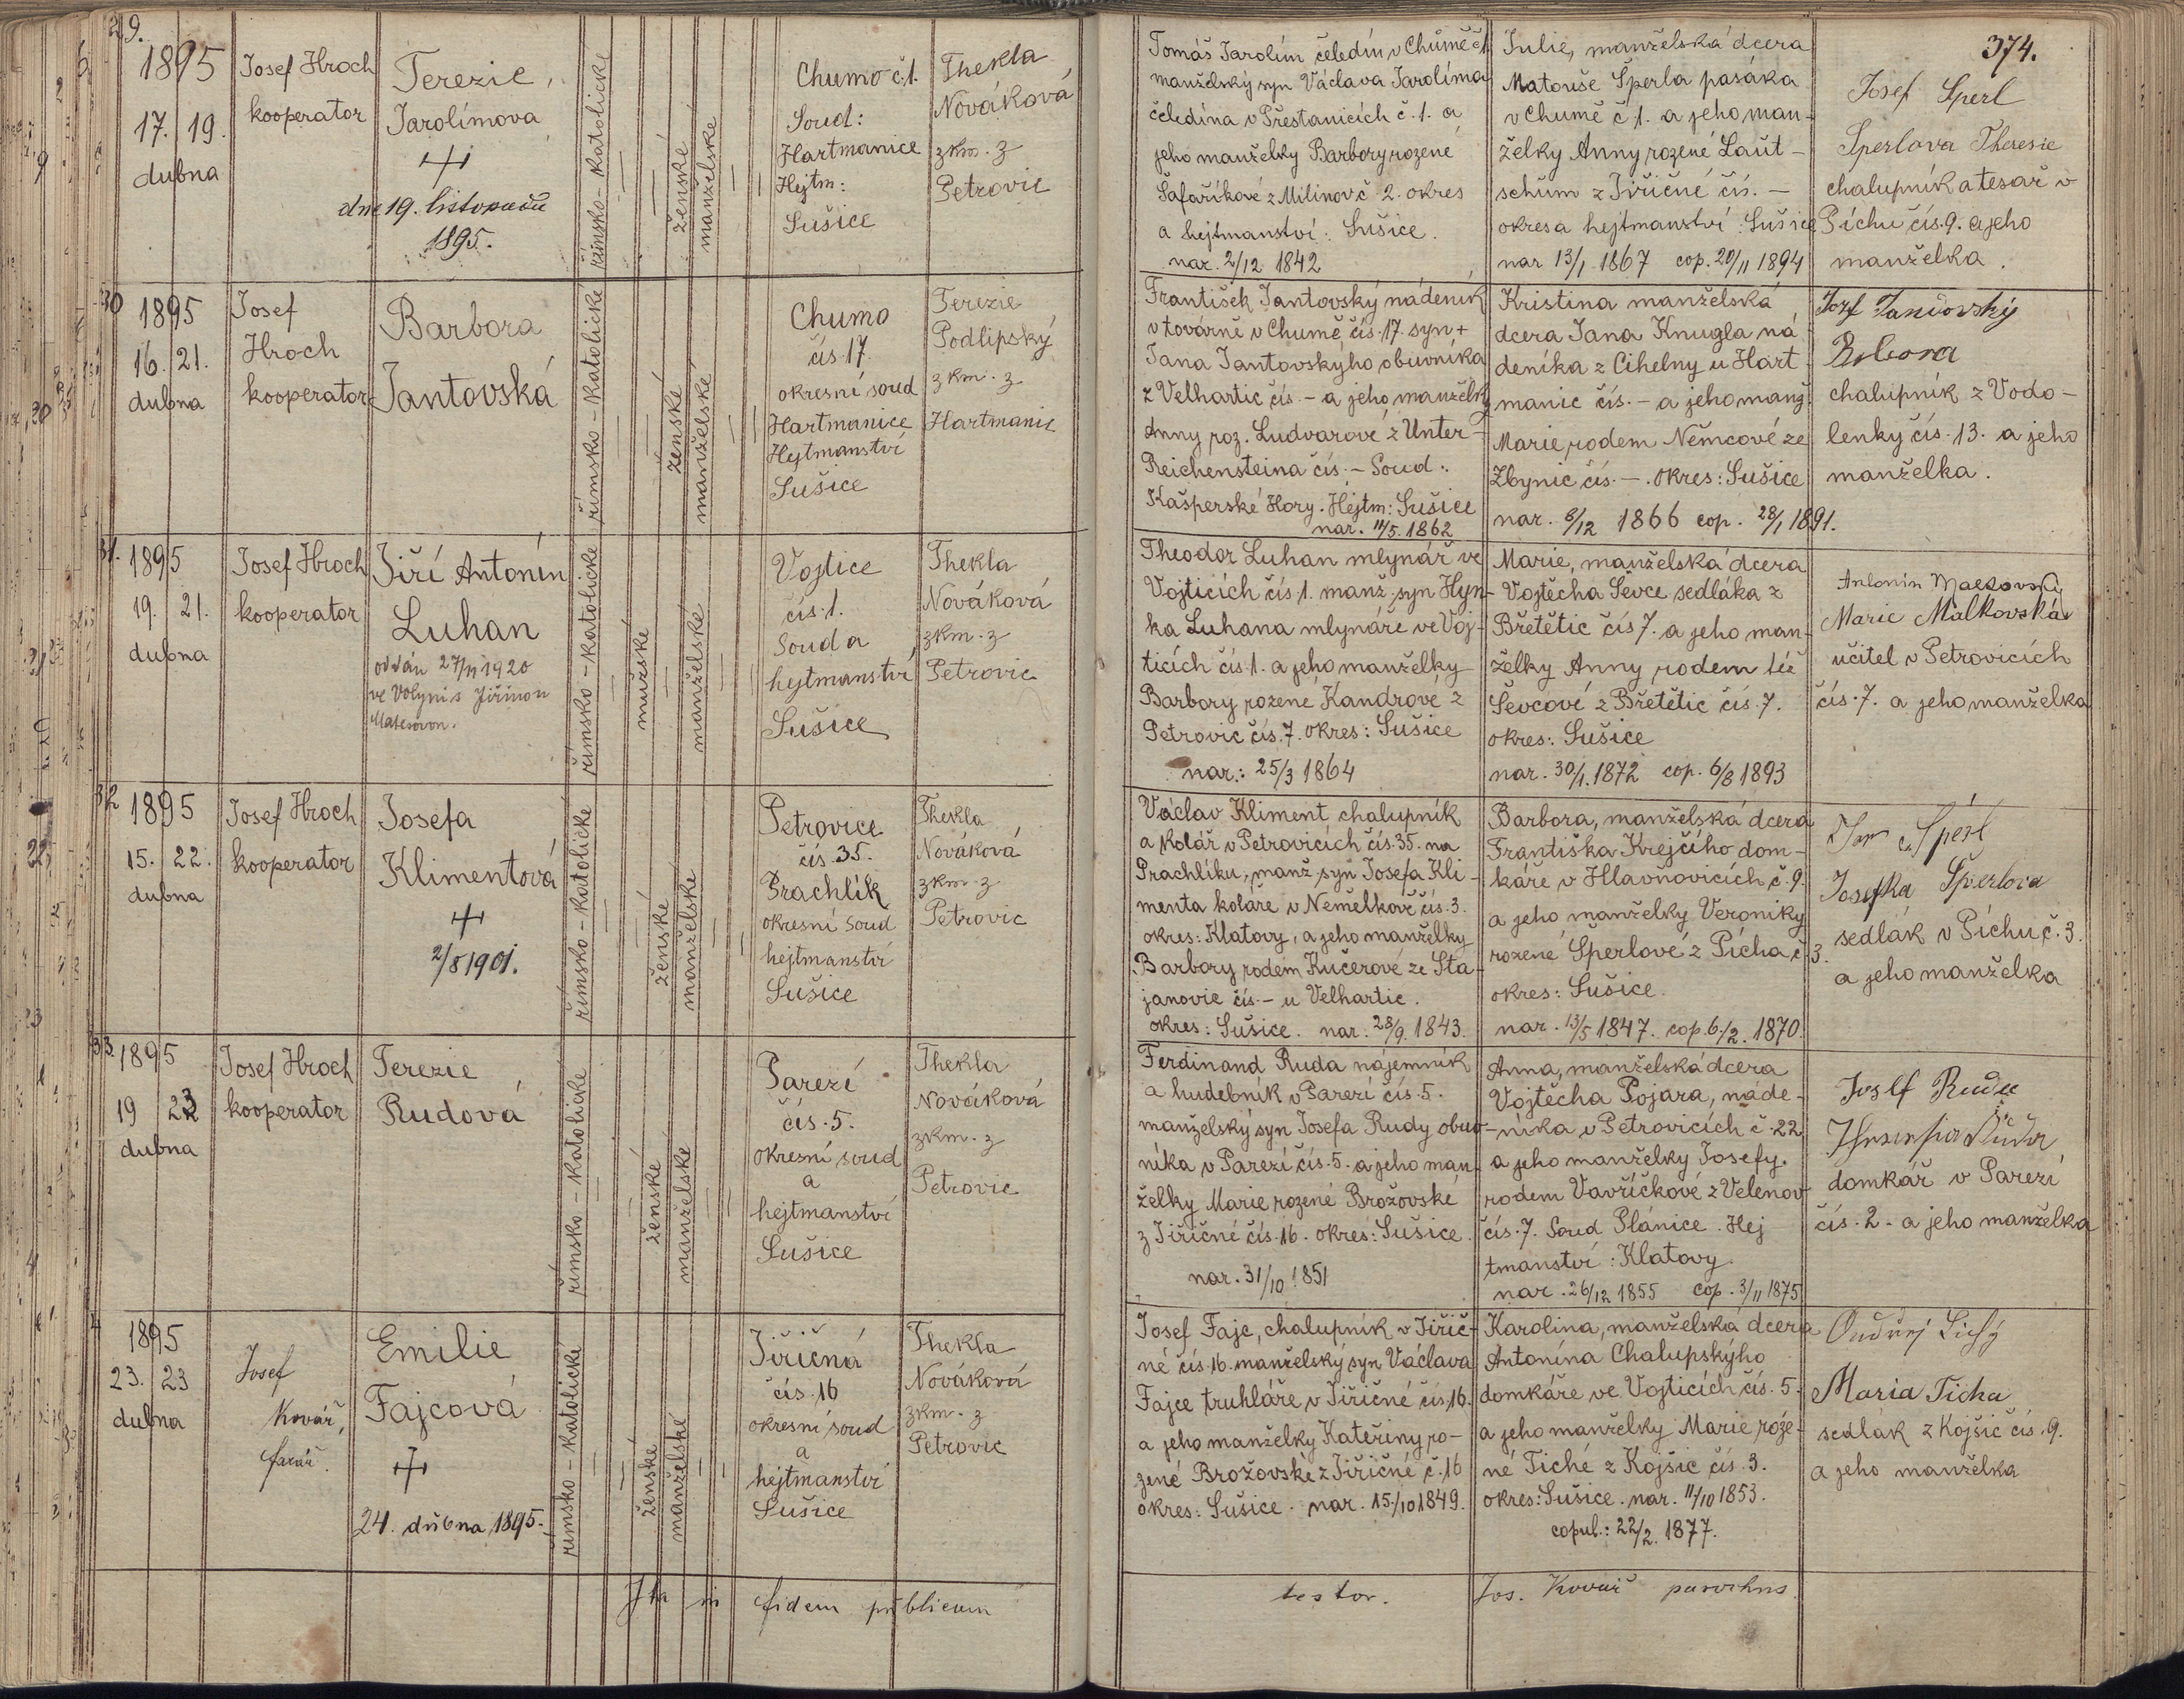 374.
29.
1895
17. 19.
dubna
Josef Hroch
kooperator
Terezie
Jarolímova
dne 19. listopadu
1895.
římsko-katolické
ženské
manželské
Chumo č.1.
Soud:
Hartmanice
Hejtm:
Sušice
Thekla
Nováková
zkm. z
Petrovic
Tomáš Jarolím čeledín v Chumě č1.
manželský syn Václava Jarolíma
čeledína v Přestanicích č. 1. a
jeho manželky Barbory rozené
Šafaříkové z Milinov č 2. okres
a hejtmanství: Sušice.
nar. 2/12 1842
Julie, manželská dcera
Matouše Šperla pasáka
v Chumě č.1. a jeho man-
želky Anny rozené Laut-
schum z Jiřičné čís. -
okres a hejtmanství: Sušice
nar 13/1 1867 cop. 20/11 1894
Josef Sperl
Sperlova Theresie
chalupník a tesař v
Píchu čís. 9. a jeho
manželka.
30
1895
16. 21.
dubna
Josef
Hroch
kooperator
Barbora
Jantovská
římsko-katolické
ženské
manželské
Chumo
čís 17.
okresní soud
Hartmanice
Hejtmanství
Sušice
Terezie
Podlipský
zkm. z
Hartmanic
František Jantovský nádeník
v továrně v Chumě čís. 17. syn +
Jana Jantovskýho obuvníka
z Velhartic čís. - a jeho manželky
Anny roz. Ludvarové z Unter-
Reichensteina čís. - Soud:
Kašperské Hory. Hejtm: Sušice
nar. 14/5. 1862
Kristina manželská
dcera Jana Knugla ná
deníka z Cihelny u Hart-
manic čís. - a jeho manž.
Marie, rodem Němcové ze
Zbynic čís. -. okres: Sušice
nar. 8/12 1866 cop. 28/1 1891.
Jozf Jančovský
chalupník z Vodo-
lenky čís. 13. a jeho
manželka.
31.
1895
19. 21.
dubna
Josef Hroch
kooperator
Jiří Antonín
Luhan
oddán 27/11 1920
ve Volyni s Jiřinou
římsko-katolické
mužské
manželské
Vojtice
čís. 1.
Soud a
hejtmanství
Sušice
Thekla
Nováková
zkm. z
Petrovic
Theodor Luhan mlynář ve
Vojticích čís 1. manž. syn Hyn-
ka Luhana mlynáře ve Voj-
ticích čís. 1. a jeho manželky
Barbory rozené Kandrové z
Petrovic čís. 7. okres: Sušice
nar.: 25/3 1864
Marie, manželská dcera
Vojtěcha Ševce sedláka z
Břetětic čís 7. a jeho man-
želky Anny rodem též
Ševcové z Břetětic čís. 7.
okres: Sušice
nar. 30/1. 1872 cop. 6/8 1893
Antonín Malkovský
Marie Malkovská
učitel v Petrovicích
čís. 7. a jeho manželka
32
1895
15. 22.
dubna
Josef Hroch
kooperator
Josefa
Klimentová
2/8 1901.
římsko-katolické
ženské
manželské
Petrovice
čís. 35.
Prachlík
okresní soud
hejtmanství
Sušice
Thekla
Nováková
zkm. z
Petrovic
Václav Kliment chalupník
a kolář v Petrovicích čís. 35. na
Prachlíku, manž. syn Josefa Kli-
menta koláře v Nemělkově čís. 3.
okres: Klatovy, a jeho manželky
Barbory rodem Kučerové ze Sta-
janovic čís. - u Velhartic.
okres: Sušice. nar. 28/9. 1843.
Barbora, manželská dcera
Františka Krejčího dom-
káře v Hlavňovicích, č. 9.
a jeho manželky Veroniky
rozené Šperlové z Pícha č 3.
okres: Sušice.
nar. 13/5 1847. cop. 6./2. 1870
Šperl
Josefka Šperlova
sedlák v Píchu č. 3.
a jeho manželka
33.
1895
19 23
dubna
Josef Hroch
kooperator
Terezie
Rudová
římsko-katolické
ženské
manželské
Parezí
čís. 5.
okresní soud
a
hejtmanství
Sušice
Thekla
Nováková
zkm. z
Petrovic
Ferdinand Ruda nájemník
a hudebník v Parezí čís. 5.
manželský syn Josefa Rudy obuv-
níka v Parezí čís. 5. a jeho man-
želky Marie rozené Brožovské
z Jiřičné čís. 16. okres: Sušice.
nar. 31/10 1851
Anna, manželská dcera
Vojtěcha Pojara, náde-
níka v Petrovicích č. 22
a jeho manželky Josefy.
rodem Vavříčkové z Velenov
čís. 7. Soud Plánice. Hej
tmanství: Klatovy
nar. 26/12 1855 cop. 3/11 1875
Josef Ruda
domkář v Parezí
čís. 2. a jeho manželka
1895
23. 23
dubna
Josef
Kovář,
farář.
Emilie
Fajcová
24. dubna 1895.
římsko-katolické
ženské
manželské
Jiřičná
čís. 16
okresní soud
a
hejtmanství
Sušice
Thekla
Nováková
zkm. z
Petrovic
Josef Fajc, chalupník v Jiřič-
né čís. 16. manželský syn Václava
Fajce truhláře v Jiřičné čís. 16.
a jeho manželky Kateřiny ro-
zené Brožovské z Jiřičné č. 16
okres: Sušice. nar. 15./10 1849.
Karolina, manželská dcera
Antonína Chalupskýho
domkáře ve Vojticích čís. 5.
a jeho manželky Marie roze-
né Tiché z Kojšic čís. 3.
okres: Sušice. nar. 11/10 1853.
copul.: 22/2. 1877.
Ondřej Tichý
Maria Ticha
sedlák z Kojšic čís. 9.
a jeho manželka
Ita in fidem publicam
testor. Jos. Kovář parochus